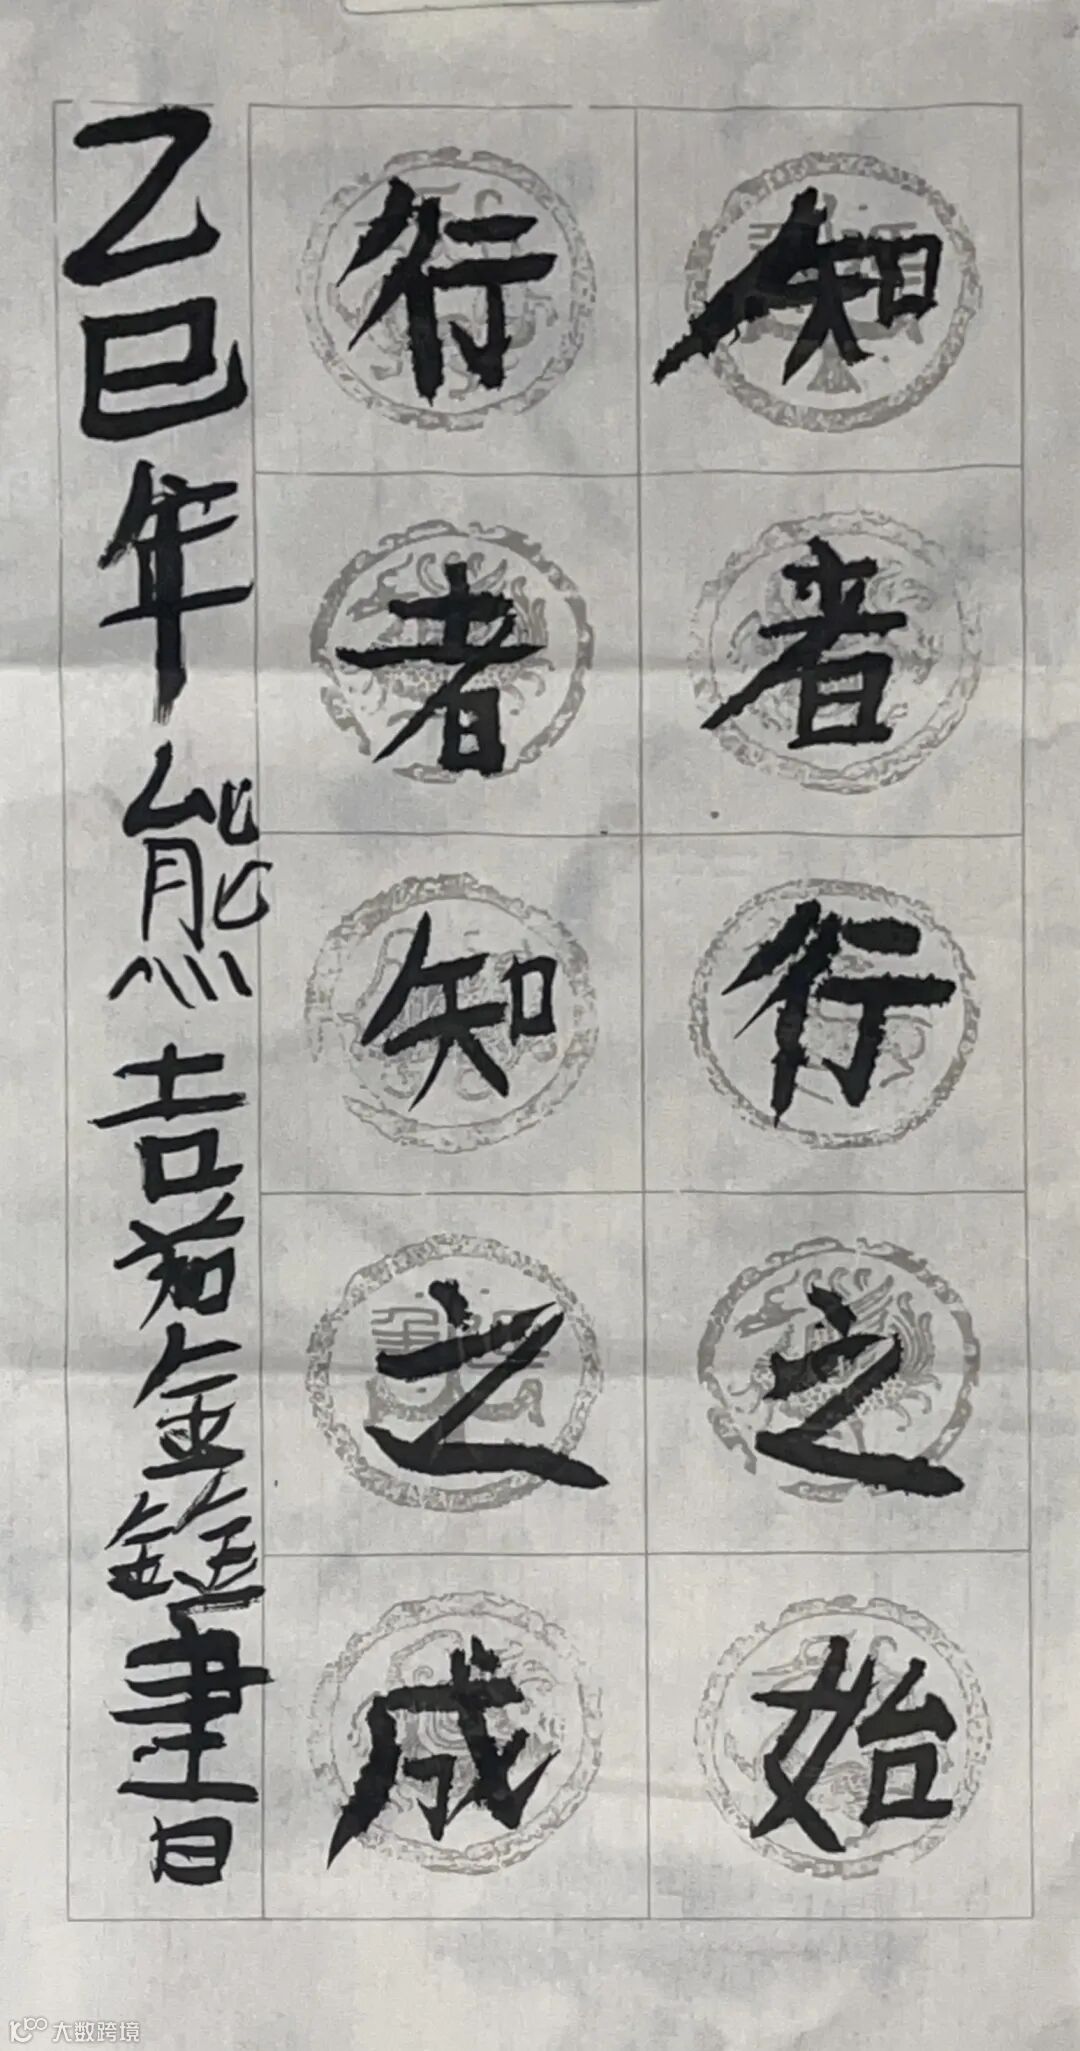 知者行之始
行者知之成
乙巳年熊嘉鑫書
大数跨境